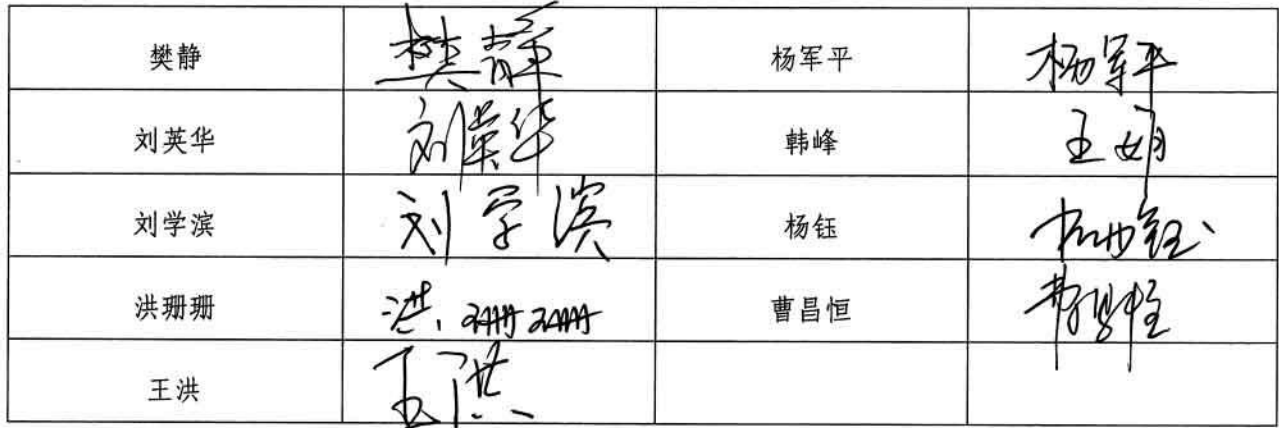 樊静 樊静 杨军平 杨军平
刘英华 刘英华 韩峰 王娟
刘学滨 刘学滨 杨钰 杨钰
洪珊珊 洪珊珊 曹昌恒
王洪 王洪